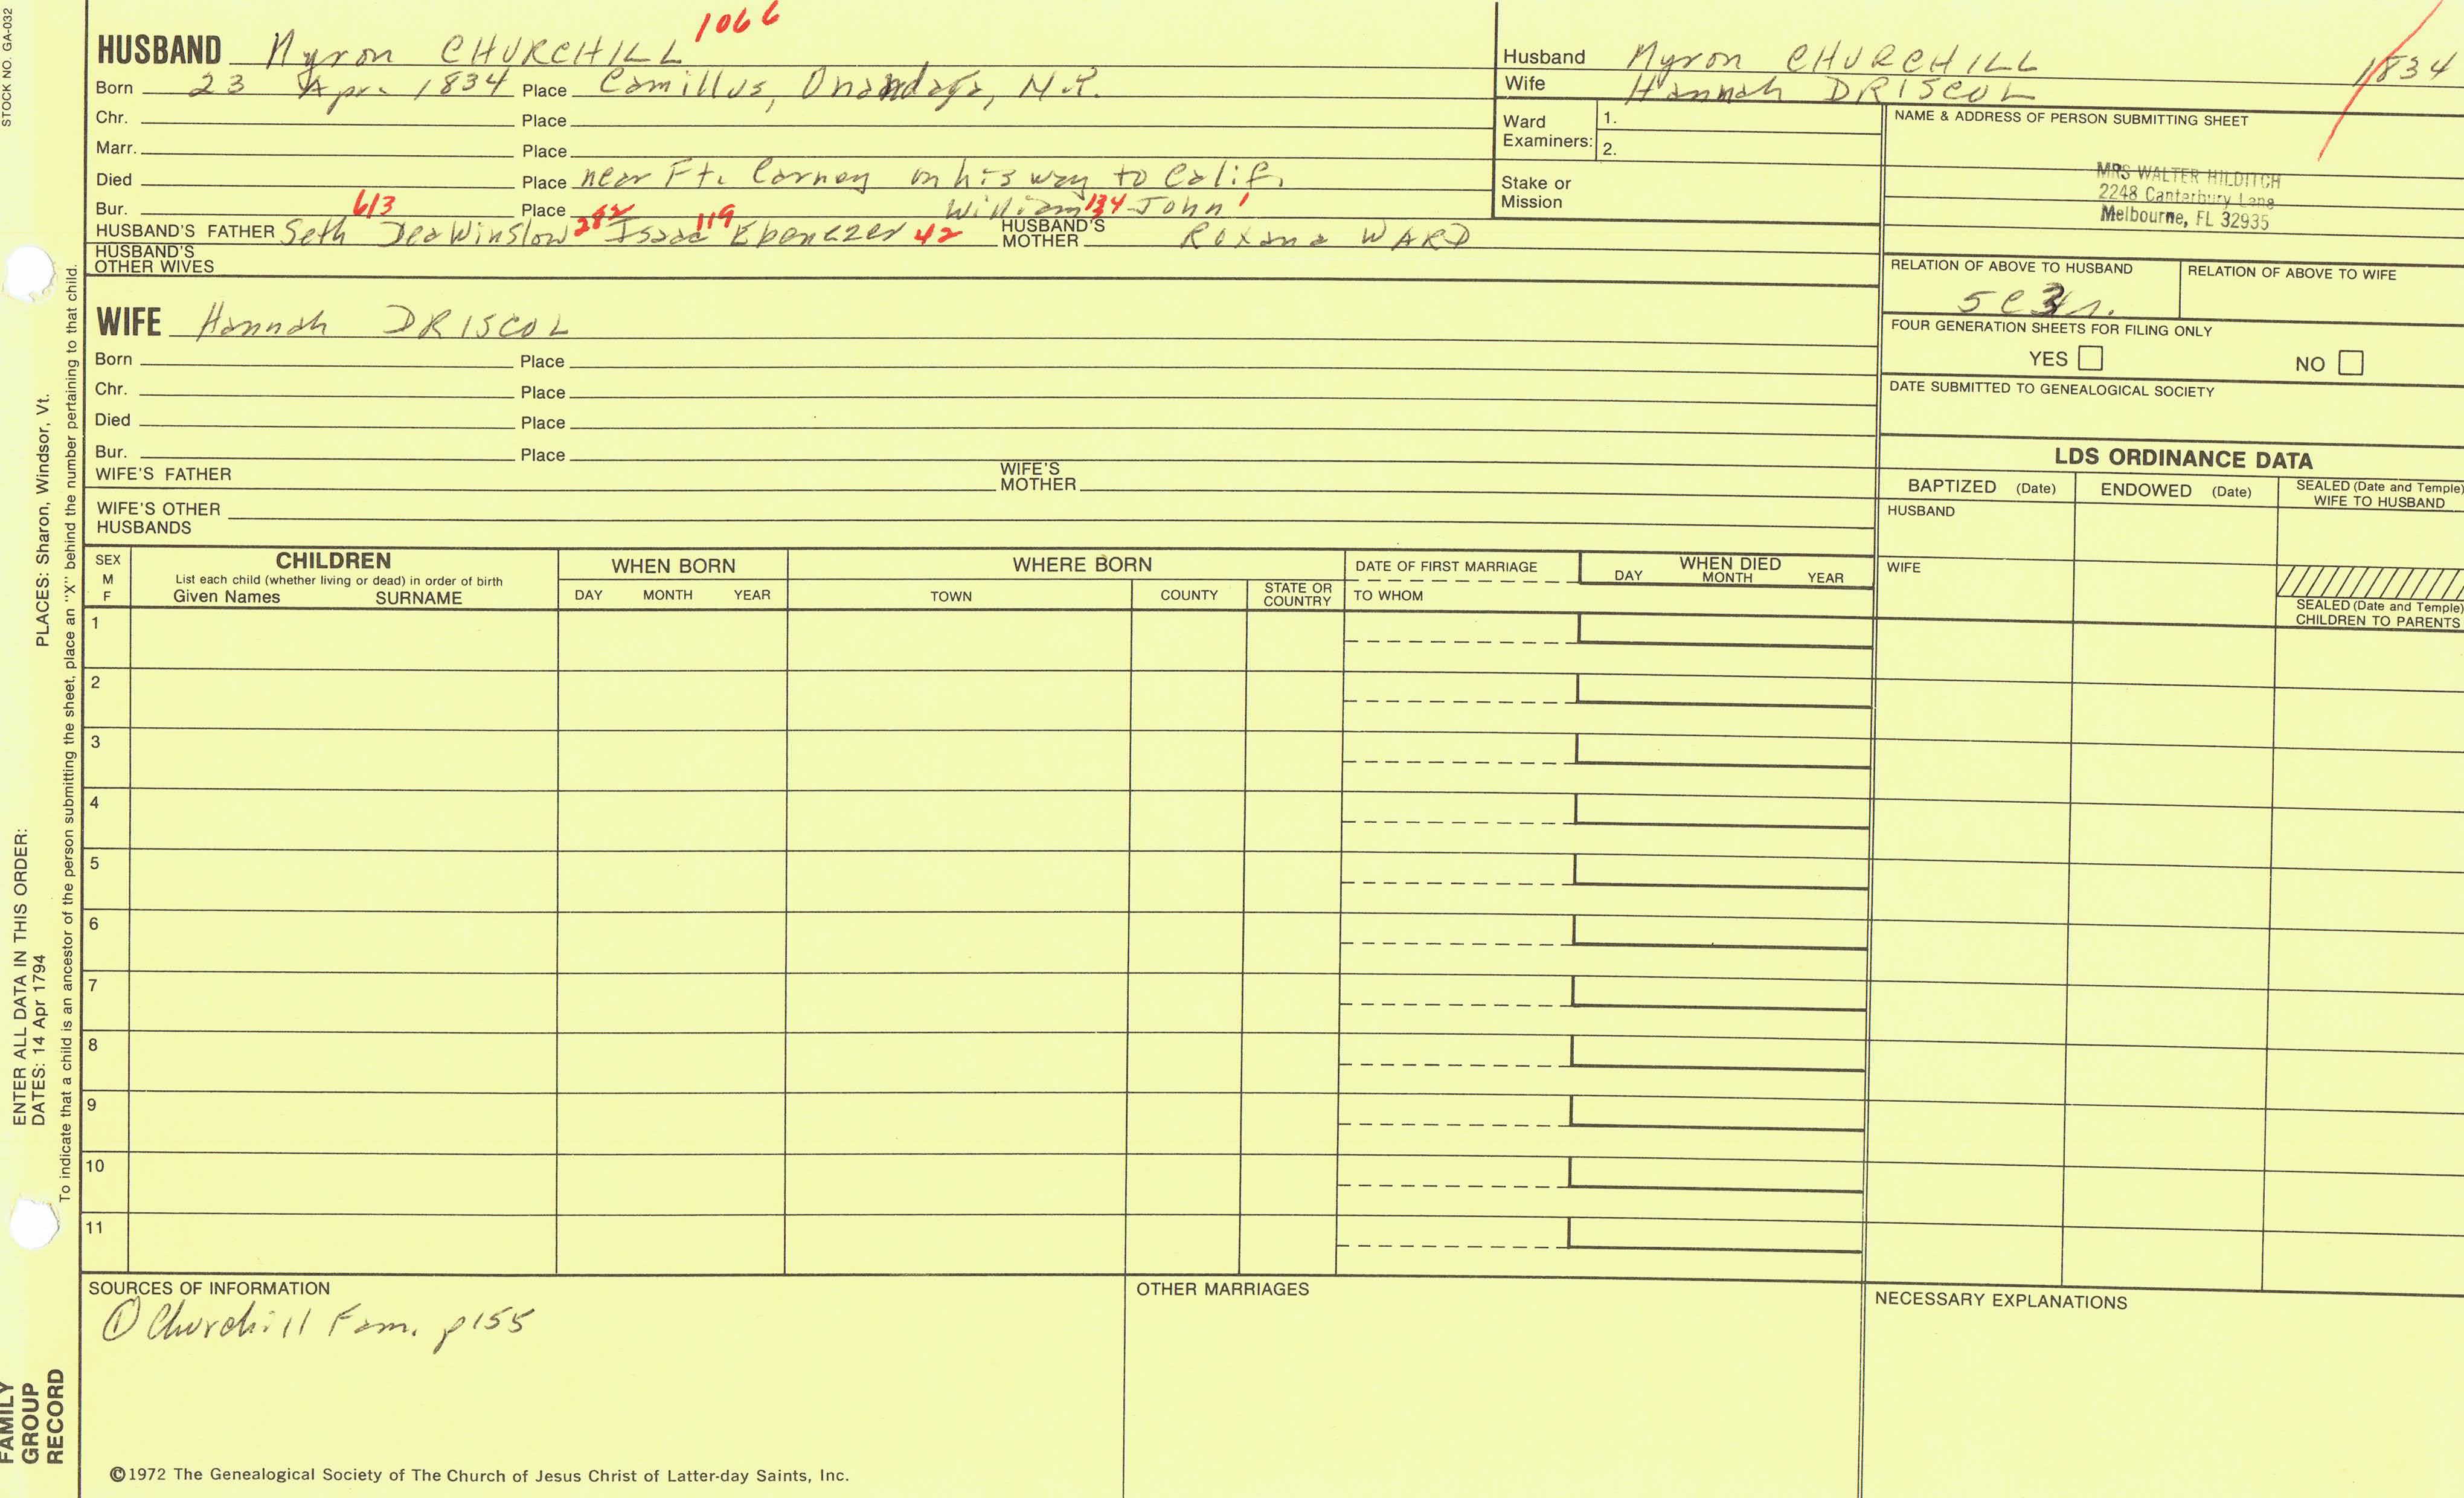 STOCK NO. GA-032
1066
HUSBAND Myron CHURCHILL
Born 23 Apr. 1834 Place Camillus, Onondaga, N.Y.
Chr. Place
Marr. Place
Died Place near Ft. Carney on his way to Calif.
Bur. 613 Place William 134 John 1
HUSBAND'S FATHER Seth Dea Winslow 282 Isaac 119 Ebenezer 42 HUSBAND'S MOTHER Roxana WARD
HUSBAND'S OTHER WIVES
WIFE Hannah DRISCOL
Born Place
Chr. Place
Died Place
Bur. Place
WIFE'S FATHER WIFE'S MOTHER
WIFE'S OTHER HUSBANDS
Husband Myron CHURCHILL 1834
Wife Hannah DRISCOL
Ward Examiners: 1.
2.
Stake or Mission
NAME & ADDRESS OF PERSON SUBMITTING SHEET
MRS WALTER HILDITCH
2248 Canterbury Lane
Melbourne, FL 32935
RELATION OF ABOVE TO HUSBAND RELATION OF ABOVE TO WIFE
FOUR GENERATION SHEETS FOR FILING ONLY
YES NO
DATE SUBMITTED TO GENEALOGICAL SOCIETY
LDS ORDINANCE DATA
BAPTIZED (Date) ENDOWED (Date) SEALED (Date and Temple) WIFE TO HUSBAND
HUSBAND
WIFE
SEALED (Date and Temple)
CHILDREN TO PARENTS
SEX M F
CHILDREN
List each child (whether living or dead) in order of birth
Given Names SURNAME
WHEN BORN
DAY MONTH YEAR
WHERE BORN
TOWN COUNTY STATE OR COUNTRY
DATE OF FIRST MARRIAGE
TO WHOM
WHEN DIED
DAY MONTH YEAR
1
2
3
4
5
6
7
8
9
10
11
SOURCES OF INFORMATION
① Churchill Fam. p155
OTHER MARRIAGES
NECESSARY EXPLANATIONS
©1972 The Genealogical Society of The Church of Jesus Christ of Latter-day Saints, Inc.
FAMILY
GROUP
RECORD
ENTER ALL DATA IN THIS ORDER:
DATES: 14 Apr 1794 PLACES: Sharon, Windsor, Vt.
To indicate that a child is an ancestor of the person submitting the sheet, place an "X" behind the number pertaining to that child.